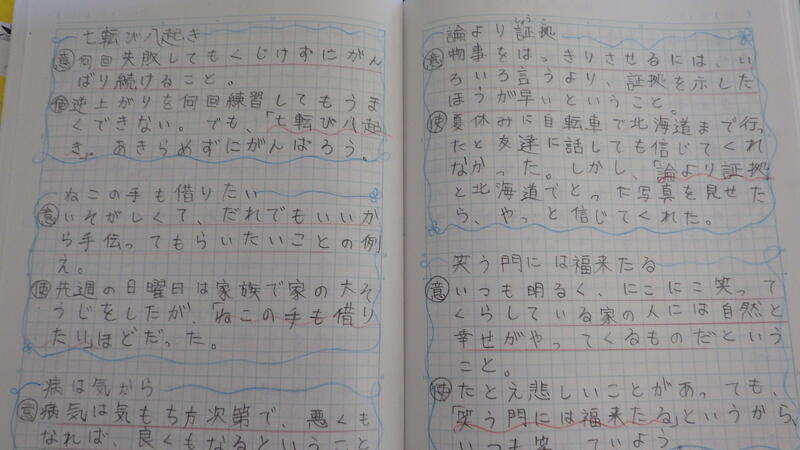 七転び八起き
意 何回失敗してもくじけずにがん
ばり続けること。
使 逆上がりを何回練習してもうま
くできない。でも、「七転び八起
き」。あきらめずにがんばろう。
ねこの手も借りたい
意 いそがしくて、だれでもいいか
ら手伝ってもらいたいことの例
え。
使 先週の日曜日は家族で家の大そ
うじをしたが、「ねこの手も借り
たい」ほどだった。
病は気から
意 病気は気もち方次第で、悪くも
なれば、良くもなるということ
論より証拠
しょうこ
意 物事をはっきりさせるには、い
ろいろ言うより、証拠を示した
ほうが早いということ。
使 夏休みに自転車で北海道まで行っ
たと友達に話しても信じてくれ
なかった。しかし、「論より証拠」
と北海道でとった写真を見せた
ら、やっと信じてくれた。
笑う門には福来たる
意 いつも明るく、にこにこ笑って
くらしている家の人には自然と
幸せがやってくるものだという
こと。
使 たとえ悲しいことがあっても、
「笑う門には福来たる」というから、
いつも笑っていよう。